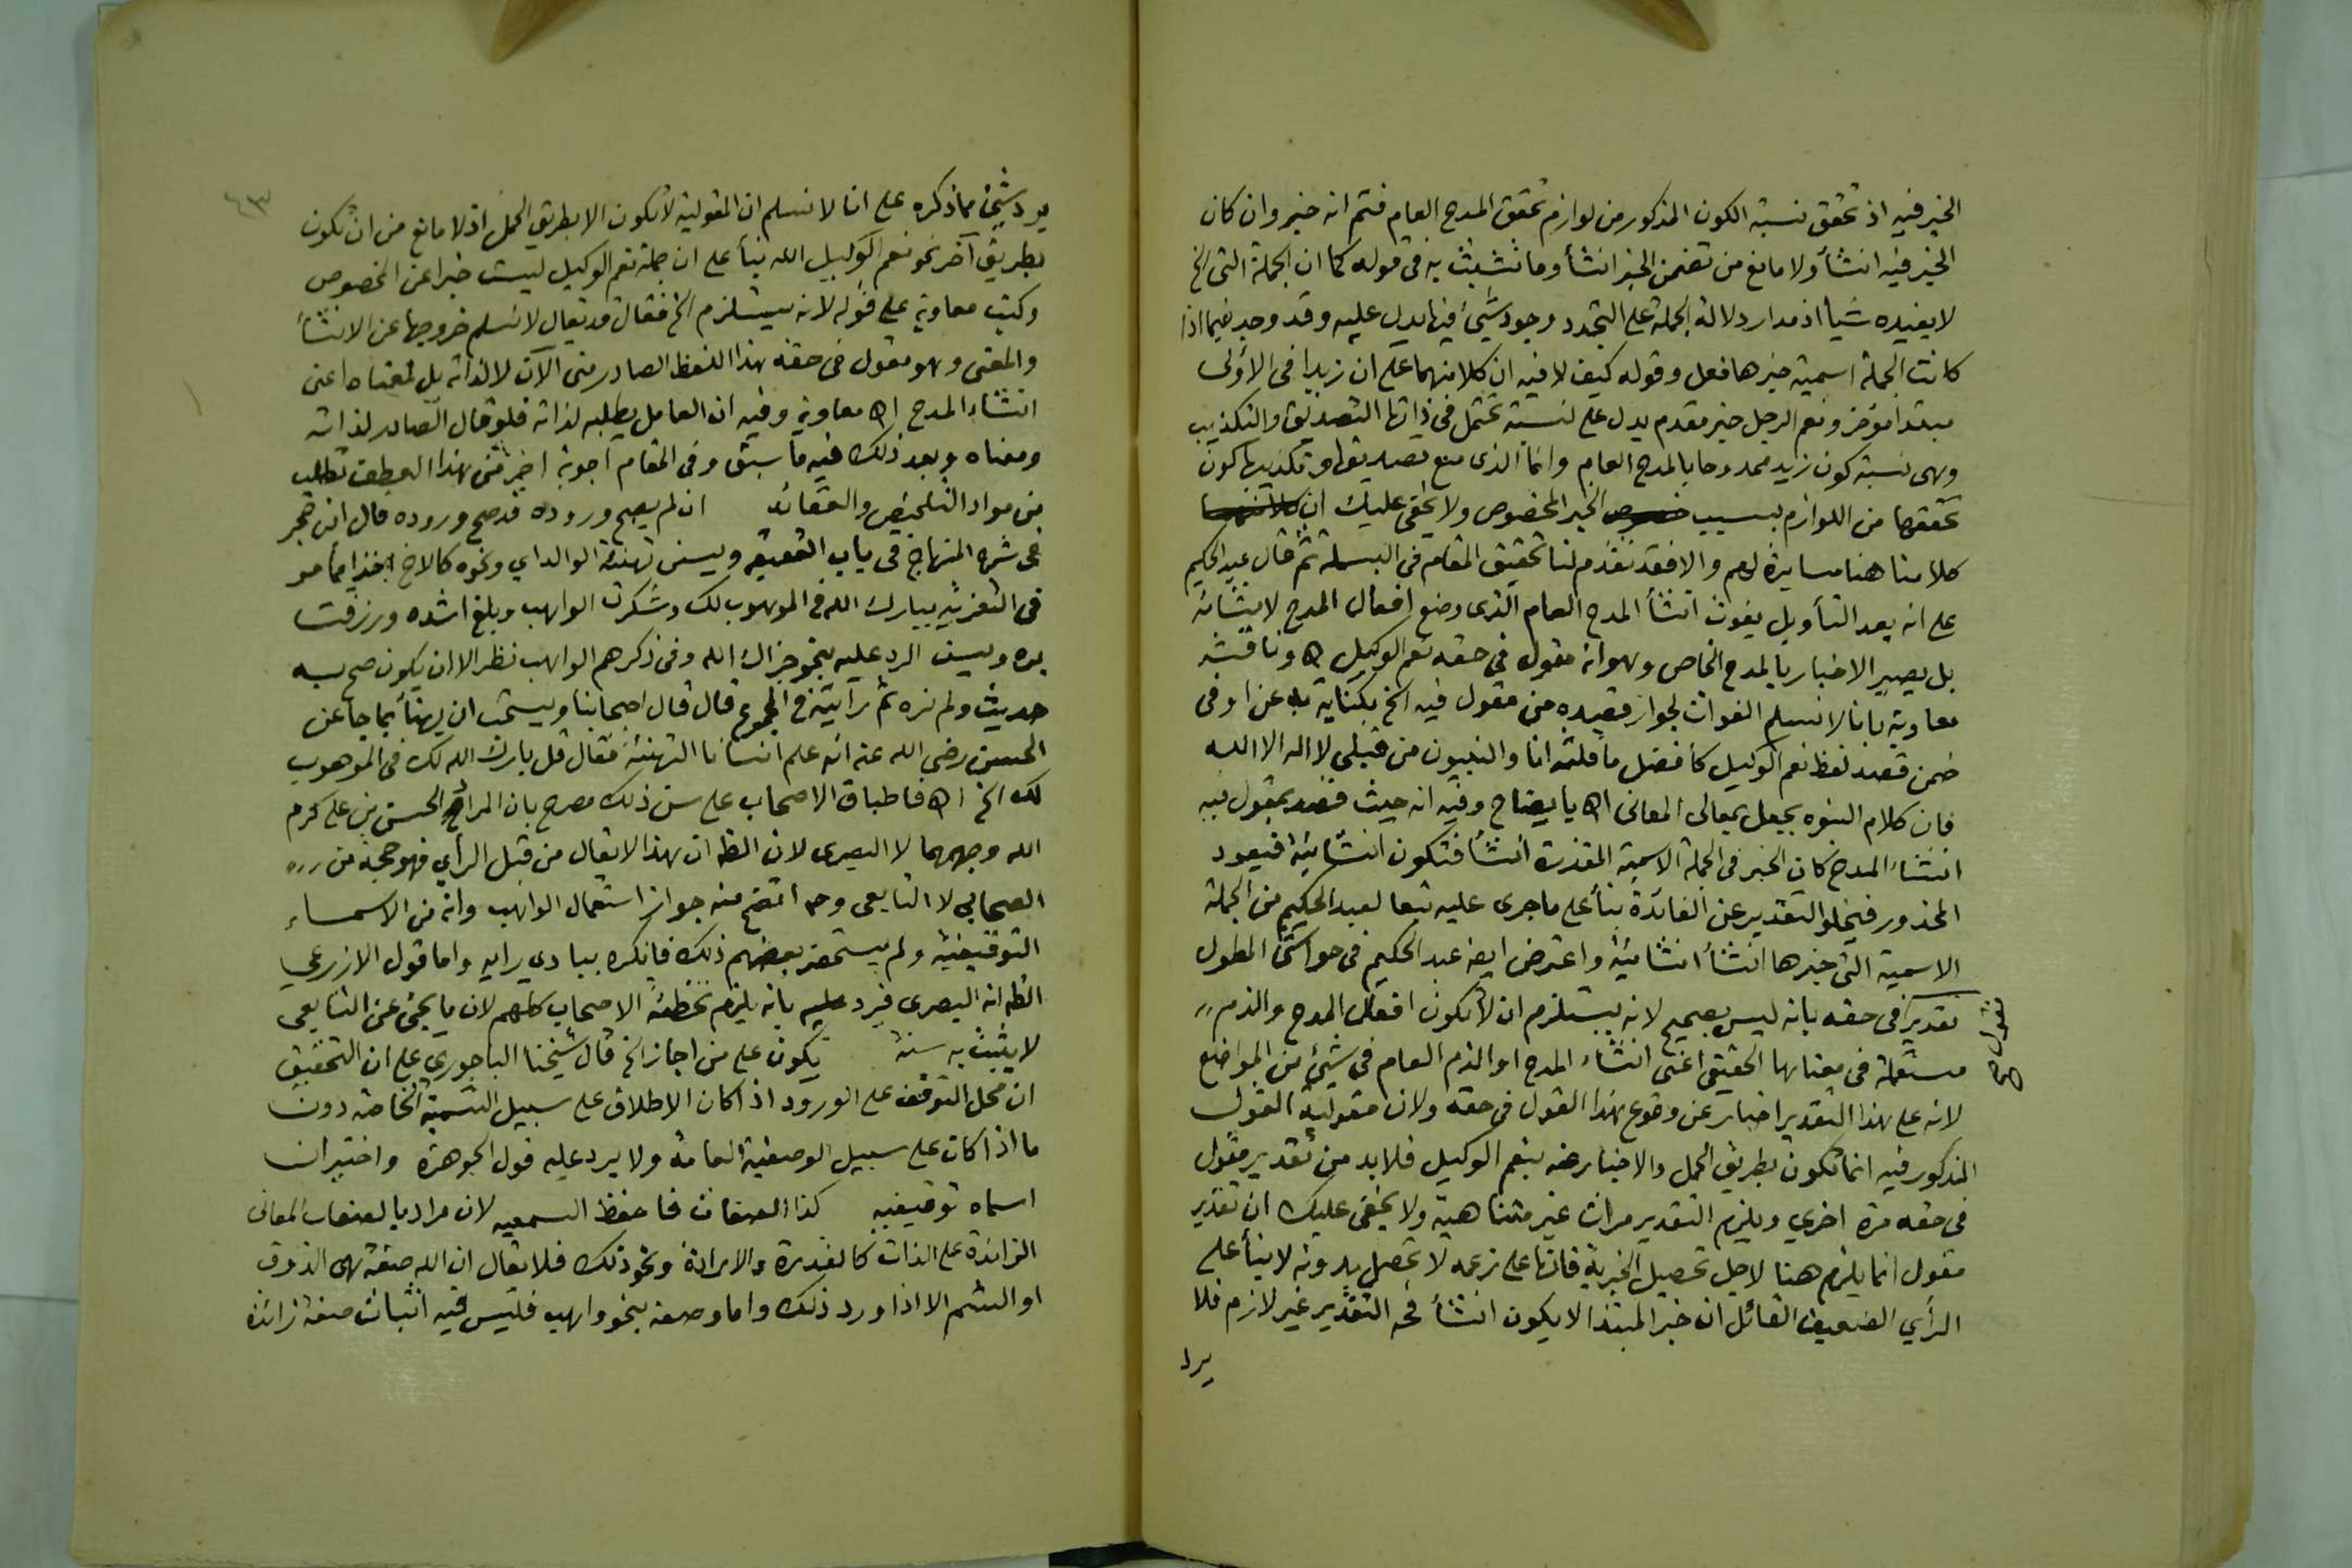 الخبر فيه اذ تحقق نسبة الكون المذكور من لوازم تحقق المدح العام فتم انه خبر وان كان
الخبر فيه انشأ ولا مانع من تضمن الخبر انشأ وما تشبث به في قوله كما ان الجملة التي الخ
لا يفيده شيأ اذ مدار دلالة الجملة على التجدد وجود شئ فيها يدل عليه وقد وجد فيما اذا
كانت الجملة اسمية خبرها فعل وقوله كيف لا فيه ان كلا منهما على ان زيدا في الاولى
مبتدا مؤخر ونعم الرجل خبر مقدم يدل على نسبة تحتمل في ذاتها التصديق والتكذيب
وهي نسبة كون زيد ممدوحا بالمدح العام وانما الذي منع تصديقها وتكذيبها كون
تحققها من اللوازم بسبب خصوص الخبر المخصوص ولا يخفى عليك ان
كلامنا هنا مسايرة لهم والا فقد تقدم لنا تحقيق المقام في البسملة ثم قال عبد الحكيم
على انه بعد التأويل يفوت انشأ المدح العام الذي وضع افعال المدح لانشائه
بل يصير الاخبار بالمدح الخاص وهو انه مقول في حقه نعم الوكيل اه وناقشه
معاوية بانا لا نسلم الفوات لجواز قصده من مقول فيه الخ بكناية به عن او في
ضمن قصد لفظ نعم الوكيل كأفضل ما قلته انا والنبيون من قبلي لا اله الا الله
فان كلام النبوه يجعل بمعالى المعاني اه بايضاح وفيه انه حيث قصد بمقول فيه
انشاء المدح كان الخبر في الجملة الاسمية المقدرة انشأ فتكون انشائية فيعود
المحذور فيخلو التقدير عن الفائدة بنأ على ما جرى عليه تبعا لعبد الحكيم من الجملة
الاسمية التي خبرها انشأ انشائية واعترض ايضا عبد الحكيم في حواشي المطول
تقدير في حقه بانه ليس بصحيح لانه يستلزم ان لا تكون افعال المدح والذم
مقول
صح
مستعملة في معناها الحقيقي اعني انشاء المدح او الذم العام في شئ من المواضع
لانه على هذا التقدير اخبار عن وقوع هذا القول في حقه ولان مقولية القول
المذكور فيه انما تكون بطريق الحمل والاخبار عنه بنعم الوكيل فلا بد من تقدير مقول
في حقه مرة اخرى ويلزم التقدير مرات غير متناهية ولا يخفى عليك ان تقدير
مقول انما يلزم هنا لاجل تحصيل الخبرية فانها على زعمه لا تحصل بدونه لا بنأ على
الرأي الضعيف القائل ان خبر المبتدا لا يكون انشأ فح التقدير غير لازم فلا
يرد
٤٣
يرد شئ مما ذكره على انا لا نسلم ان المقولية لا تكون الا بطريق الحمل اذ لا مانع من ان تكون
بطريق آخر نحو نعم الوكيل الله بنأ على ان جملة نعم الوكيل ليست خبرا عن المخصوص
وكتب معاوية على قوله لانه يستلزم الخ فقال قد يقال لا نسلم خروجها عن الانشأ
والمعنى وهو مقول في حقه هذا اللفظ الصادر مني الآن لا لذاته بل لمعناه اعني
انشاء المدح اه معاوية وفيه ان العامل يطلبه لذاته فلو قال الصادر لذاته
ومعناه وبعد ذلك فيه ما سبق وفي المقام اجوبة اخر عن هذا العطف تطلب
من مواد التلخيص والعقائد ان لم يصح وروده قد صح وروده قال ابن حجر
في شرح المنهاج في باب العقيقة ويسن تهنئة الوالد اي ونحوه كالاخ اخذا مما مر
في التعزية ببارك الله في الموهوب لك وشكرت الواهب وبلغ اشده ورزقت
بره ويسن الرد عليه بنحو جزاك الله وفي ذكرهم الواهب نظر الا ان يكون صح به
حديث ولم نره ثم رأيته في المجموع قال قال اصحابنا ويستحب ان يهنأ بما جا عن
الحسن رضى الله عنه انه علم انسانا التهنئة فقال قل بارك الله لك في الموهوب
لك الخ اه فاطباق الاصحاب على سن ذلك مصرح بان المراد الحسن بن علي كرم
الله وجههما لا البصرى لان الظ ان هذا لا يقال من قبل الرأي فهو حجة من
الصحابي لا التابعى وح اتضح منه جواز استعمال الواهب وانه من الاسماء
التوقيفية ولم يستحضر بعضهم ذلك فانكره ببادي رأيه واما قول الاذرعي
الظ انه البصرى فيرد عليه بانه يلزم تخطئة الاصحاب كلهم لان ما يجئ عن التابعى
لا يثبت به سنة يكون على من اجاز الخ قال شيخنا الباجوري على ان التحقيق
ان محل التوقف على الورود اذا كان الاطلاق على سبيل التسمية الخاصة دون
ما اذا كان على سبيل الوصفية العامة ولا يرد عليه قول الجوهرة واختير ان
اسماه توقيفيه كذا الصفات فاحفظ السمعيه لان مراد بالصفات المعاني
الزائدة على الذات كالقدرة والارادة ونحو ذلك فلا يقال ان لله صفة هي الذوق
او الشم الا اذا ورد ذلك واما وصفه بنحو واهب فليس فيه اثبات صفة زائدة